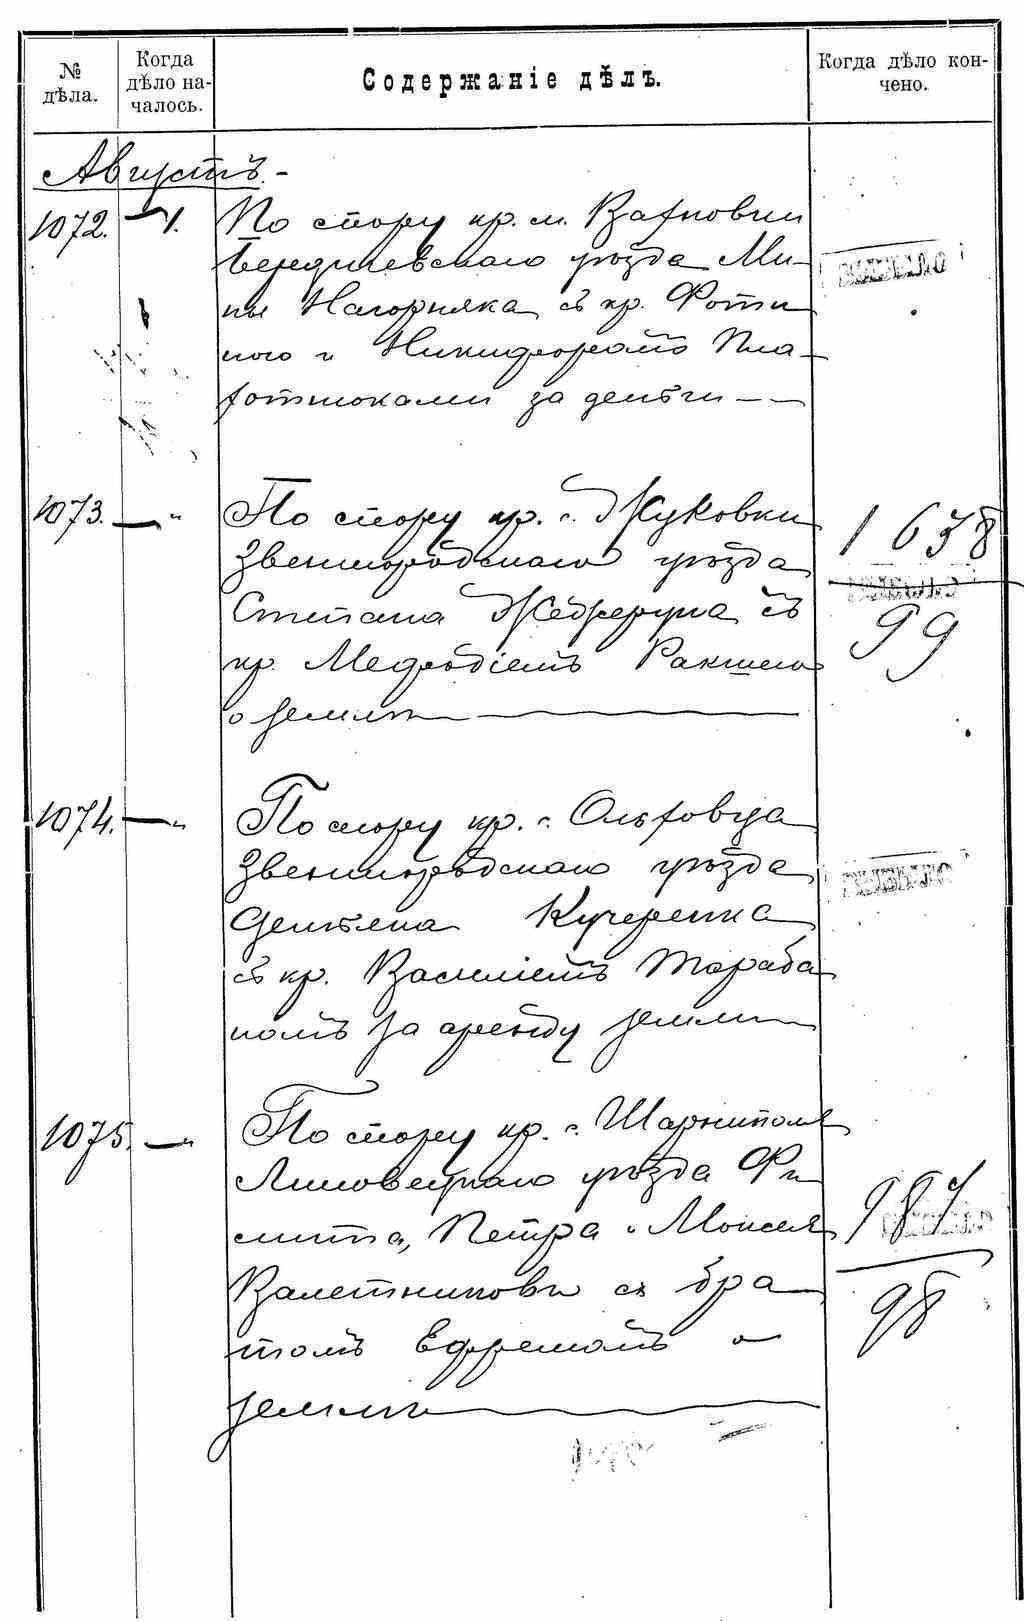 № дѣла.
Когда дѣло началось.
Содержаніе дѣлъ.
Когда дѣло кончено.
Августъ.-
1072. — 1.
По спору кр. м. Вахновки
Бердичевскаго уѣзда Ми-
ны Нагорняка съ кр. Фоти
и Никифоромъ Пла-
хотнюками за деньги — —
1073. — "
По спору кр. с. Жуковки
Звенигородскаго уѣзда
Степана Жеджеруна съ
кр. Мефодіемъ Ракшею
о землѣ
1638
99
1074. — "
По спору кр. с. Ольховца
Звенигородскаго уѣзда
Демьяна Кучеренка
съ кр. Василіемъ Тараба
номъ за аренду земли
1075. — "
По спору кр. с. Шарниполя
Липовецкаго уѣзда Фи
липа, Петра и Моисея
Валетниковы съ бра
томъ Ефремомъ о
землѣ
987
98